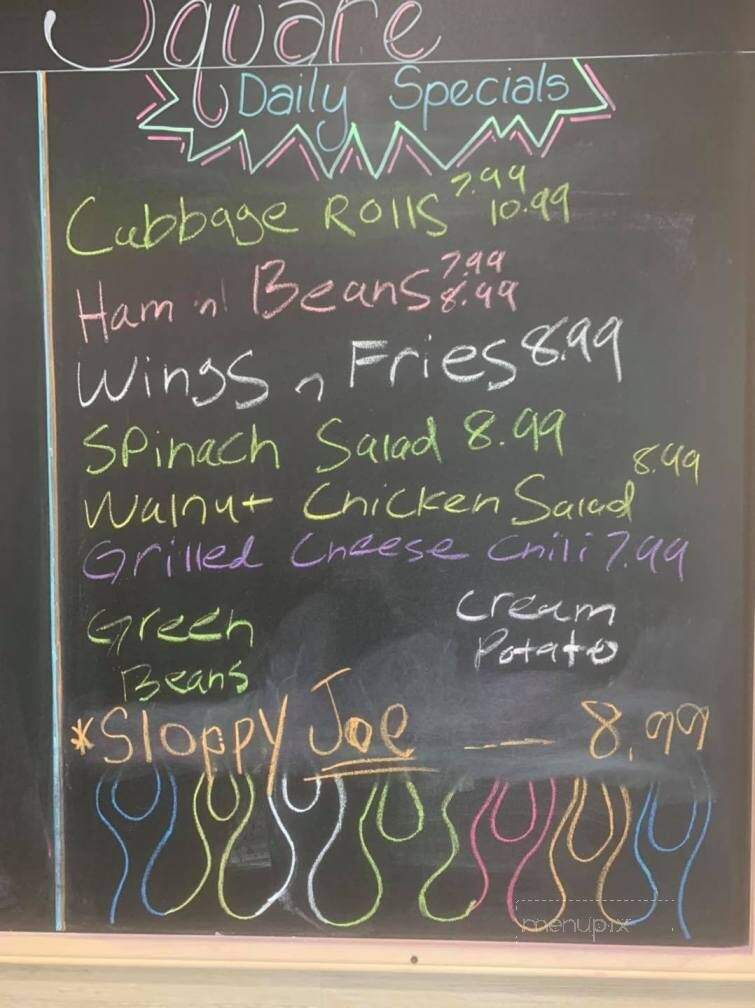 Square
Daily Specials
Cabbage Rolls 7.99
10.99
Ham 'n' Beans 7.99
8.99
Wings n Fries 8.99
Spinach Salad 8.99
8.99
Walnut Chicken Salad
Grilled Cheese Chili 7.99
Green
Beans
Cream
Potato
*Sloppy Joe — 8.99
menupix